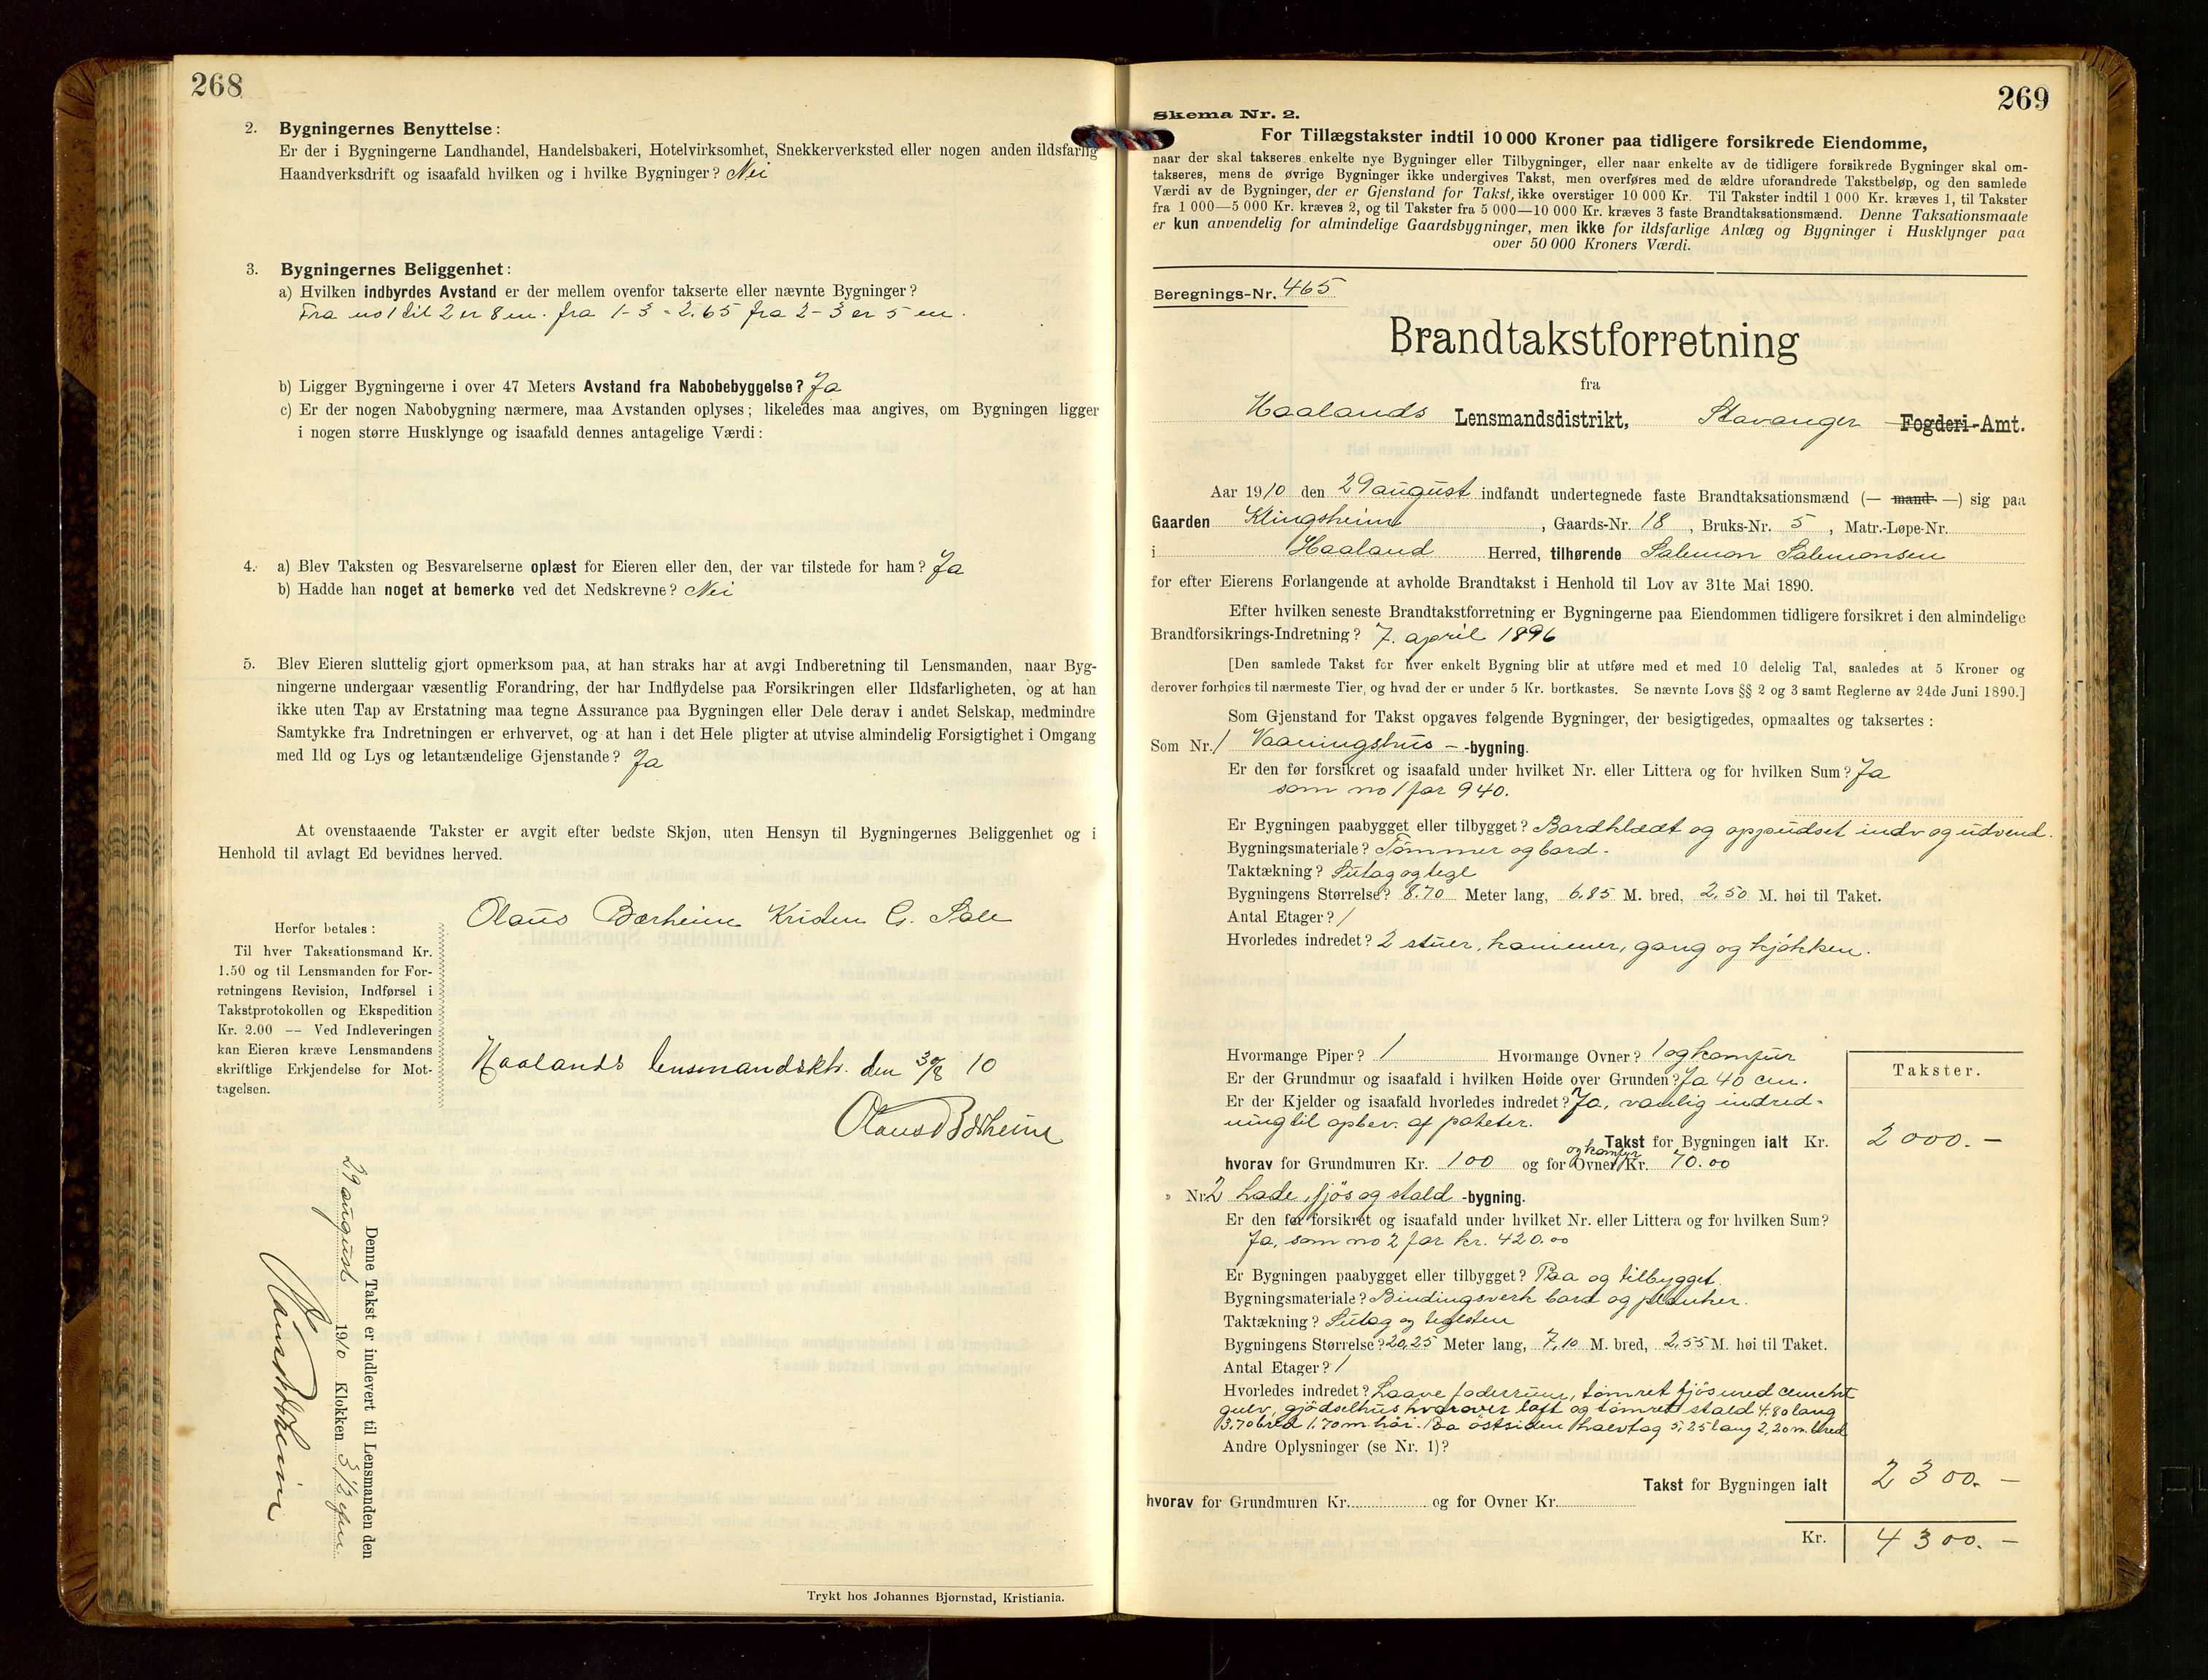 268
2. Bygningernes Benyttelse:
Er der i Bygningerne Landhandel, Handelsbakeri, Hotelvirksomhet, Snekkerverksted eller nogen anden ildsfarlig
Haandverksdrift og isaafald hvilken og i hvilke Bygninger? Nei
3. Bygningernes Beliggenhet:
a) Hvilken indbyrdes Avstand er der mellem ovenfor takserte eller nævnte Bygninger?
Fra no 1 til 2 er 8 m. fra 1-3 = 2.65 fra 2-3 er 5 m.
b) Ligger Bygningerne i over 47 Meters Avstand fra Nabobebyggelse? Ja
c) Er der nogen Nabobygning nærmere, maa Avstanden oplyses; likeledes maa angives, om Bygningen ligger
i nogen større Husklynge og isaafald dennes antagelige Værdi:
4. a) Blev Taksten og Besvarelserne oplæst for Eieren eller den, der var tilstede for ham? Ja
b) Hadde han noget at bemerke ved det Nedskrevne? Nei
5. Blev Eieren sluttelig gjort opmerksom paa, at han straks har at avgi Indberetning til Lensmanden, naar Byg-
ningerne undergaar væsentlig Forandring, der har Indflydelse paa Forsikringen eller Ildsfarligheten, og at han
ikke uten Tap av Erstatning maa tegne Assurance paa Bygningen eller Dele derav i andet Selskap, medmindre
Samtykke fra Indretningen er erhvervet, og at han i det Hele pligter at utvise almindelig Forsigtighet i Omgang
med Ild og Lys og letantændelige Gjenstande? Ja
At ovenstaaende Takster er avgit efter bedste Skjøn, uten Hensyn til Bygningernes Beliggenhet og i
Henhold til avlagt Ed bevidnes herved.
Olaus Børheim Kristen G. Sole
Herfor betales:
Til hver Taksationsmand Kr.
1.50 og til Lensmanden for For-
retningens Revision, Indførsel i
Takstprotokollen og Ekspedition
Kr. 2.00 — Ved Indleveringen
kan Eieren kræve Lensmandens
skriftlige Erkjendelse for Mot-
tagelsen.
Haalands lensmandsktr. den 30/8 10
Olaus Børheim
Denne Takst er indlevert til Lensmanden den
29 august 1910 Klokken 3 1/2 efm.
Olaus Børheim
Trykt hos Johannes Bjørnstad, Kristiania.
269
Skema Nr. 2.
For Tillægstakster indtil 10 000 Kroner paa tidligere forsikrede Eiendomme,
naar der skal takseres enkelte nye Bygninger eller Tilbygninger, eller naar enkelte av de tidligere forsikrede Bygninger skal om-
takseres, mens de øvrige Bygninger ikke undergives Takst, men overføres med de ældre uforandrede Takstbeløp, og den samlede
Værdi av de Bygninger, der er Gjenstand for Takst, ikke overstiger 10 000 Kr. Til Takster indtil 1 000 Kr. kræves 1, til Takster
fra 1 000—5 000 Kr. kræves 2, og til Takster fra 5 000—10 000 Kr. kræves 3 faste Brandtaksationsmænd. Denne Taksationsmaate
er kun anvendelig for almindelige Gaardsbygninger, men ikke for ildsfarlige Anlæg og Bygninger i Husklynger paa
over 50 000 Kroners Værdi.
Beregnings-Nr. 465
Brandtakstforretning
fra
Haalands Lensmandsdistrikt, Stavanger Fogderi-Amt.
Aar 1910 den 29 august indfandt undertegnede faste Brandtaksationsmænd (— mand —) sig paa
Gaarden Klingsheim, Gaards-Nr. 18, Bruks-Nr. 5, Matr.-Løpe-Nr.
i Haaland Herred, tilhørende Salemon Salemonsen
for efter Eierens Forlangende at avholde Brandtakst i Henhold til Lov av 31te Mai 1890.
Efter hvilken seneste Brandtakstforretning er Bygningerne paa Eiendommen tidligere forsikret i den almindelige
Brandforsikrings-Indretning? 7. april 1896
[Den samlede Takst for hver enkelt Bygning blir at utføre med et med 10 delelig Tal, saaledes at 5 Kroner og
derover forhøies til nærmeste Tier, og hvad der er under 5 Kr. bortkastes. Se nævnte Lovs §§ 2 og 3 samt Reglerne av 24de Juni 1890.]
Som Gjenstand for Takst opgaves følgende Bygninger, der besigtigedes, opmaaltes og taksertes:
Som Nr. 1 Vaaningshus - -bygning.
Er den før forsikret og isaafald under hvilket Nr. eller Littera og for hvilken Sum? Ja
som no 1 for 940.
Er Bygningen paabygget eller tilbygget? Bordklædt og oppudset indv og udvend.
Bygningsmateriale? Tømmer og bord.
Taktækning? Sutag og tegl
Bygningens Størrelse? 8.70 Meter lang, 6.85 M. bred, 2.50 M. høi til Taket.
Antal Etager? 1
Hvorledes indredet? 2 stuer, kammer, gang og kjøkken.
Hvormange Piper? 1 Hvormange Ovner? 1 og komfur
Er der Grundmur og isaafald i hvilken Høide over Grunden? Ja 40 cm.
Er der Kjelder og isaafald hvorledes indredet? Ja, vanlig indred-
ning til opbev. af poteter.
Takster.
Takst for Bygningen ialt Kr. 2000.-
hvorav for Grundmuren Kr. 100 og for Ovner og komfur Kr. 70.00
» Nr 2 Lade, fjøs og stald -bygning.
Er den før forsikret og isaafald under hvilket Nr. eller Littera og for hvilken Sum?
Ja, som no 2 for kr. 420.00
Er Bygningen paabygget eller tilbygget? Paa og tilbygget.
Bygningsmateriale? Bindingsverk bord og planker.
Taktækning? Sutag og teglsten
Bygningens Størrelse? 20,25 Meter lang, 7,10 M. bred, 2,55 M. høi til Taket.
Antal Etager? 1
Hvorledes indredet? Laave foderrum, tømret fjøs med cement
gulv, gjødselhus hvorover loft og tømret stald 4.80 lang
3.70 bred 1.70 m. høi. Paa østsiden halvtag 5,25 lang 2,20 m. bred
Andre Oplysninger (se Nr. 1)?
Takst for Bygningen ialt 2300.-
hvorav for Grundmuren Kr. og for Ovner Kr.
Kr. 4300.-